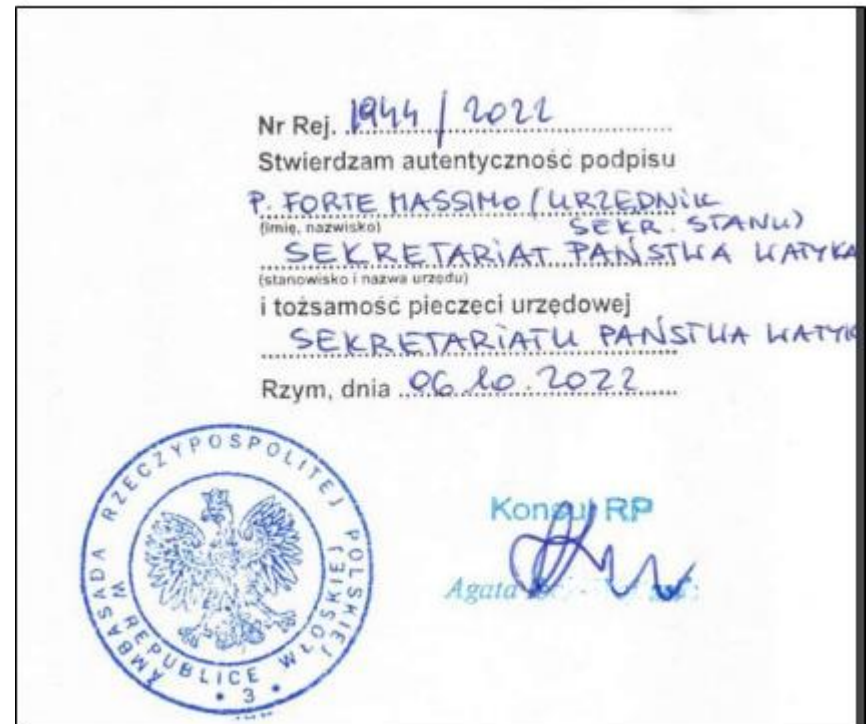 Nr Rej. 1944 / 2022
Stwierdzam autentyczność podpisu
P. FORTE MASSIMO (URZĘDNIK
(imię, nazwisko) SEKR. STANU)
SEKRETARIAT PAŃSTWA WATYKA
(stanowisko i nazwa urzędu)
i tożsamość pieczęci urzędowej
SEKRETARIATU PAŃSTWA WATYK
Rzym, dnia 06.10.2022
AMBASADA RZECZYPOSPOLITEJ POLSKIEJ
W REPUBLICE WŁOSKIEJ
• 3 •
Konsul RP
Agata